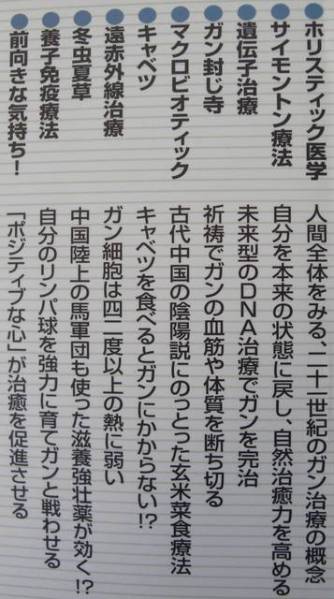 ●ホリスティック医学 人間全体をみる、二十一世紀のガン治療の概念
●サイモントン療法 自分を本来の状態に戻し、自然治癒力を高める
●遺伝子治療 未来型のDNA治療でガンを完治
●ガン封じ寺 祈祷でガンの血筋や体質を断ち切る
●マクロビオティック 古代中国の陰陽説にのっとった玄米菜食療法
●キャベツ キャベツを食べるとガンにかからない!?
●遠赤外線治療 ガン細胞は四二度以上の熱に弱い
●冬虫夏草 中国陸上の馬軍団も使った滋養強壮薬が効く!?
●養子免疫療法 自分のリンパ球を強力に育てガンと戦わせる
●前向きな気持ち! 「ポジティブな心」が治癒を促進させる